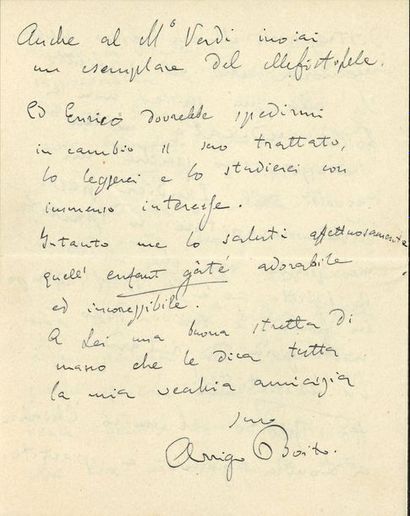 Anche al M° Verdi inviai
un esemplare del Mefistofele.
Ed Enrico dovrebbe spedirmi
in cambio il suo trattato,
lo leggerei e lo studierei con
immenso interesse.
Intanto me lo saluti affettuosamente
quell' enfant gâté adorabile
ed incorreggibile.
A Lei una buona stretta di
mano che le dica tutta
la mia vecchia amicizia
suo
Arrigo Boito.